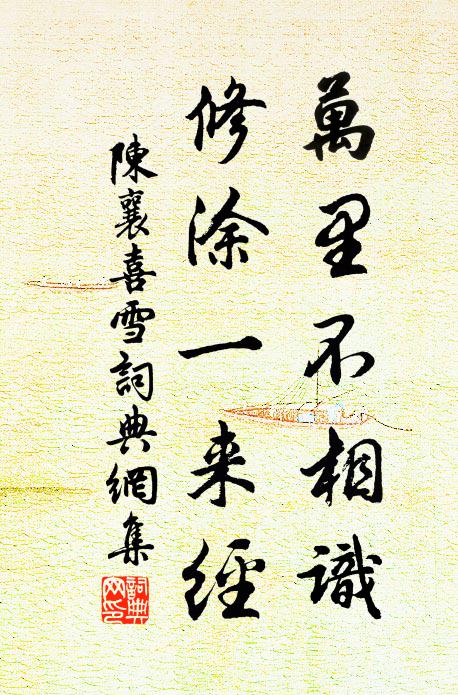 萬里不相識
修涂一来經
陳襄喜雪詞典網集
詞典
网印